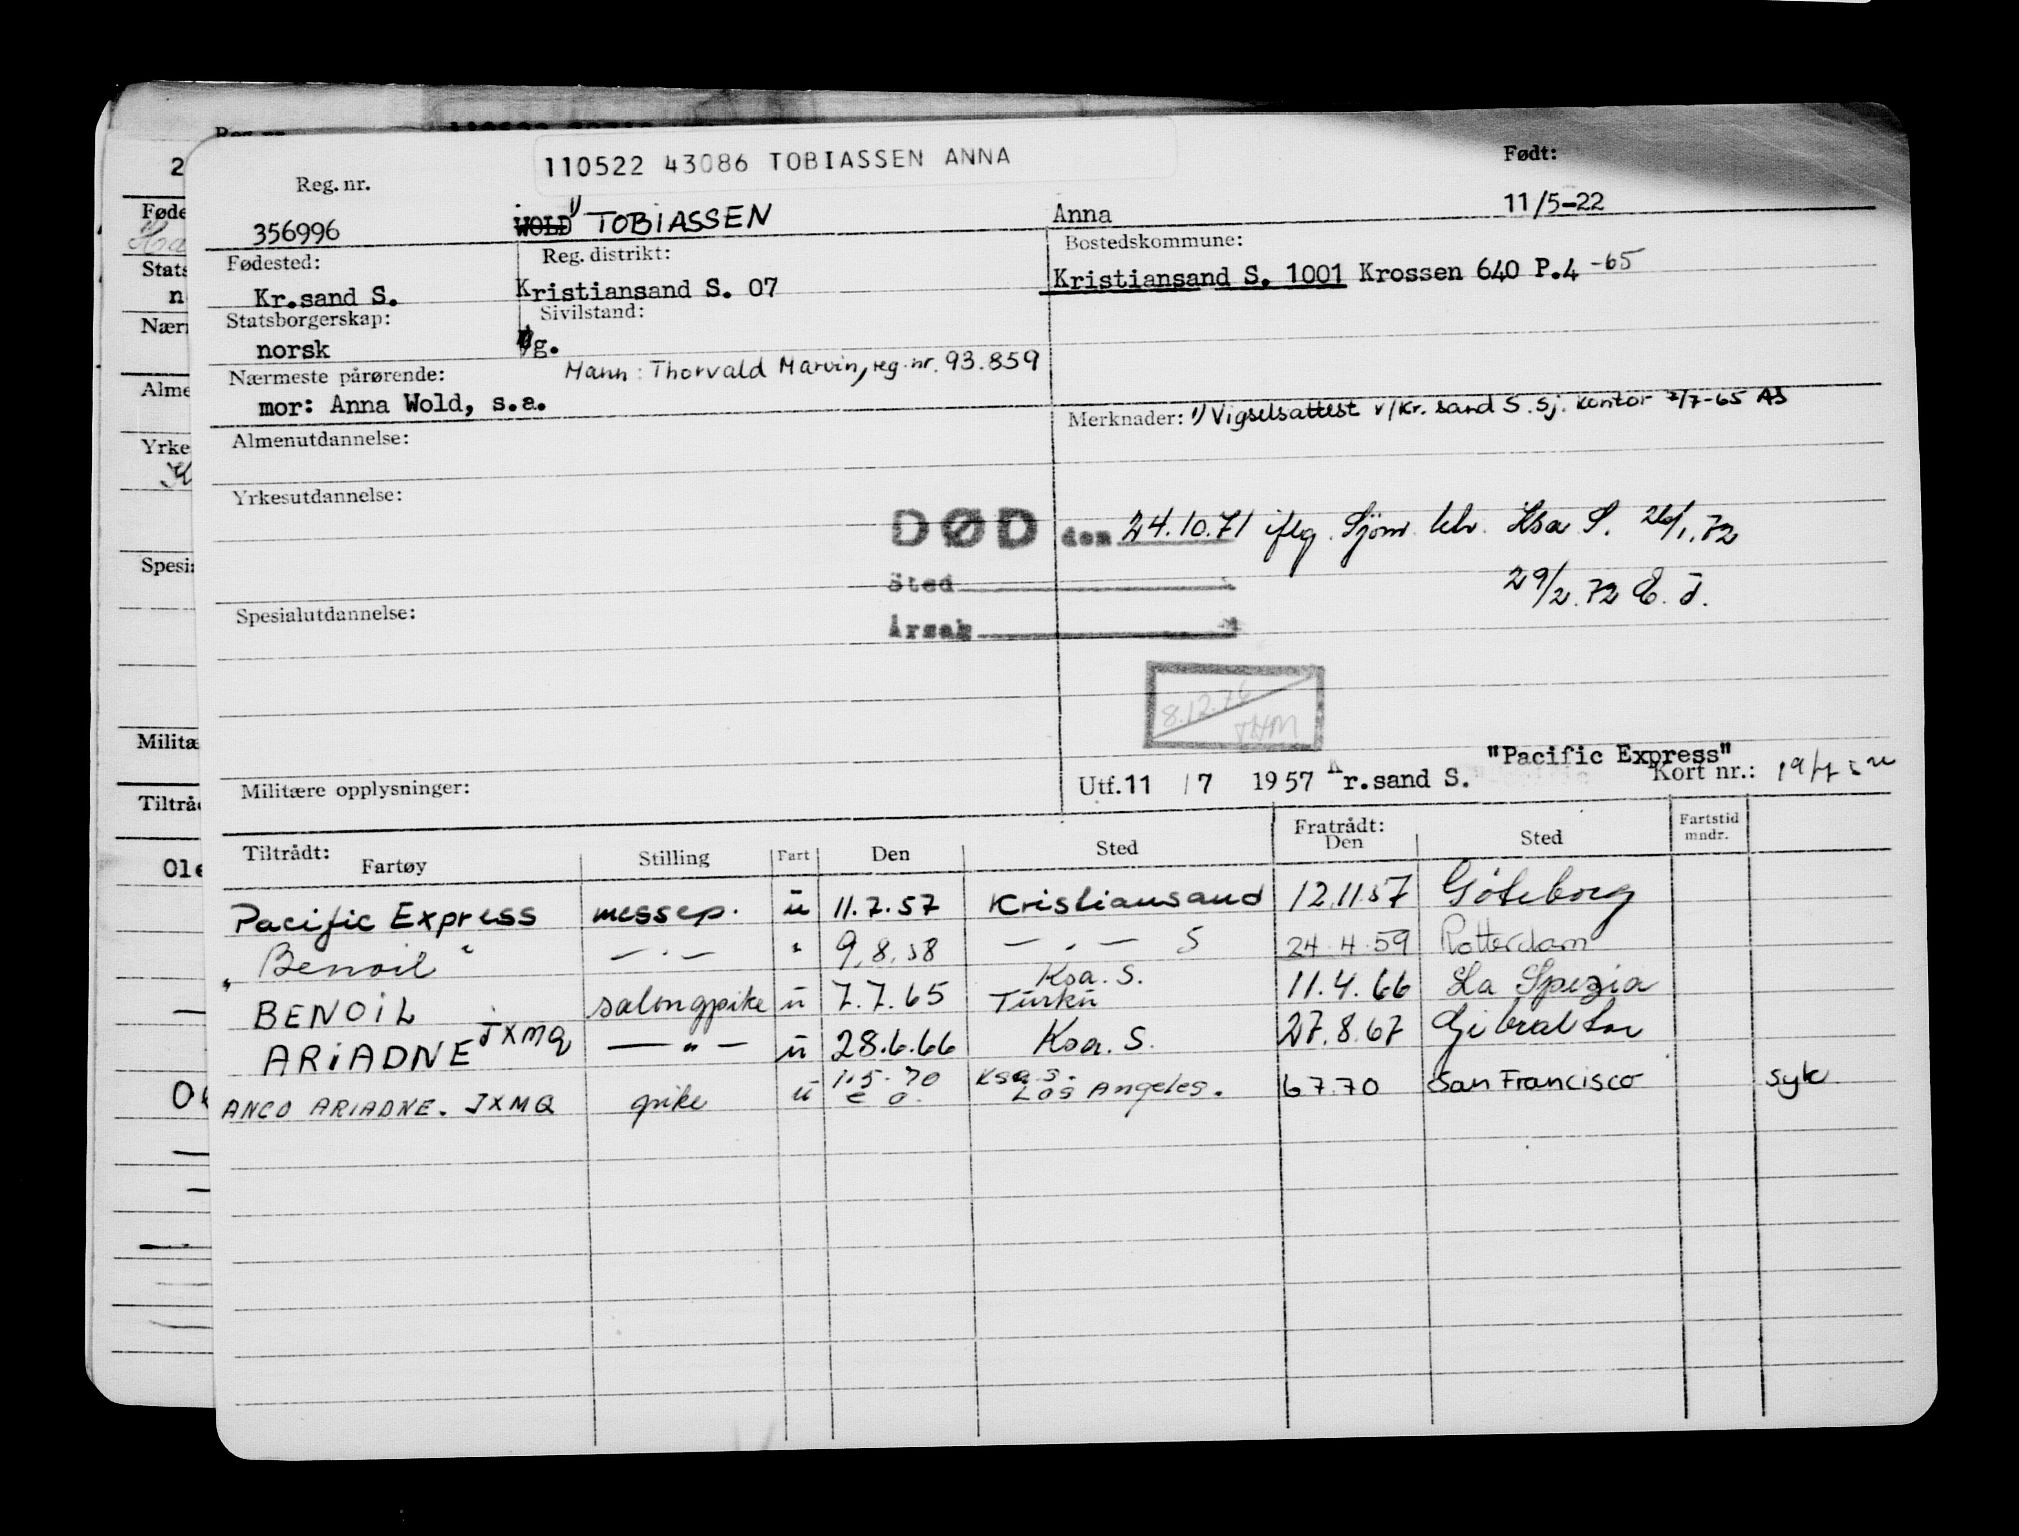 110522 43086 TOBIASSEN ANNA
Reg. nr.
Født:
356996
WOLD 1) TOBIASSEN
Anna
11/5-22
Fødested:
Reg. distrikt:
Bostedskommune:
Kr.sand S.
Kristiansand S. 07
Kristiansand S. 1001 Krossen 640 P.4 -65
Statsborgerskap:
Sivilstand:
norsk
g.
Nærmeste pårørende:
Mann: Thorvald Marvin, reg. nr. 93.859
mor: Anna Wold, s.a.
Merknader: 1) Vigselsattest v/Kr. sand S. Sj. kontor 2/7-65 AS
Almenutdannelse:
Yrkesutdannelse:
DØD den 24.10.71 iflg. Sjøm. Ksa S. 26/1.72
29/2.72 E. J.
Sted
Årsak
Spesialutdannelse:
8.12.76
"Pacific Express"
Militære opplysninger:
Utf. 11 / 7 1957 Kr.sand S.
Kort nr.:
Tiltrådt:
Fartøy Stilling Fart Den Sted Fratrådt: Den Sted Fartstid mndr.
Pacific Express messep. u 11.7.57 Kristiansand 12.11.57 Göteborg
" Benoil " — . — " 9.8.58 — . — S 24.4.59 Rotterdam
BENOIL salongpike u 7.7.65 Ksa. S. Turku 11.4.66 La Spezia
ARIADNE JXMQ — " — u 28.6.66 Ksa. S. 27.8.67 Gibraltar
ANCO ARIADNE. JXMQ pike u 1.5.70 Ksa S. Los Angeles. 6 7.70 San Francisco syk